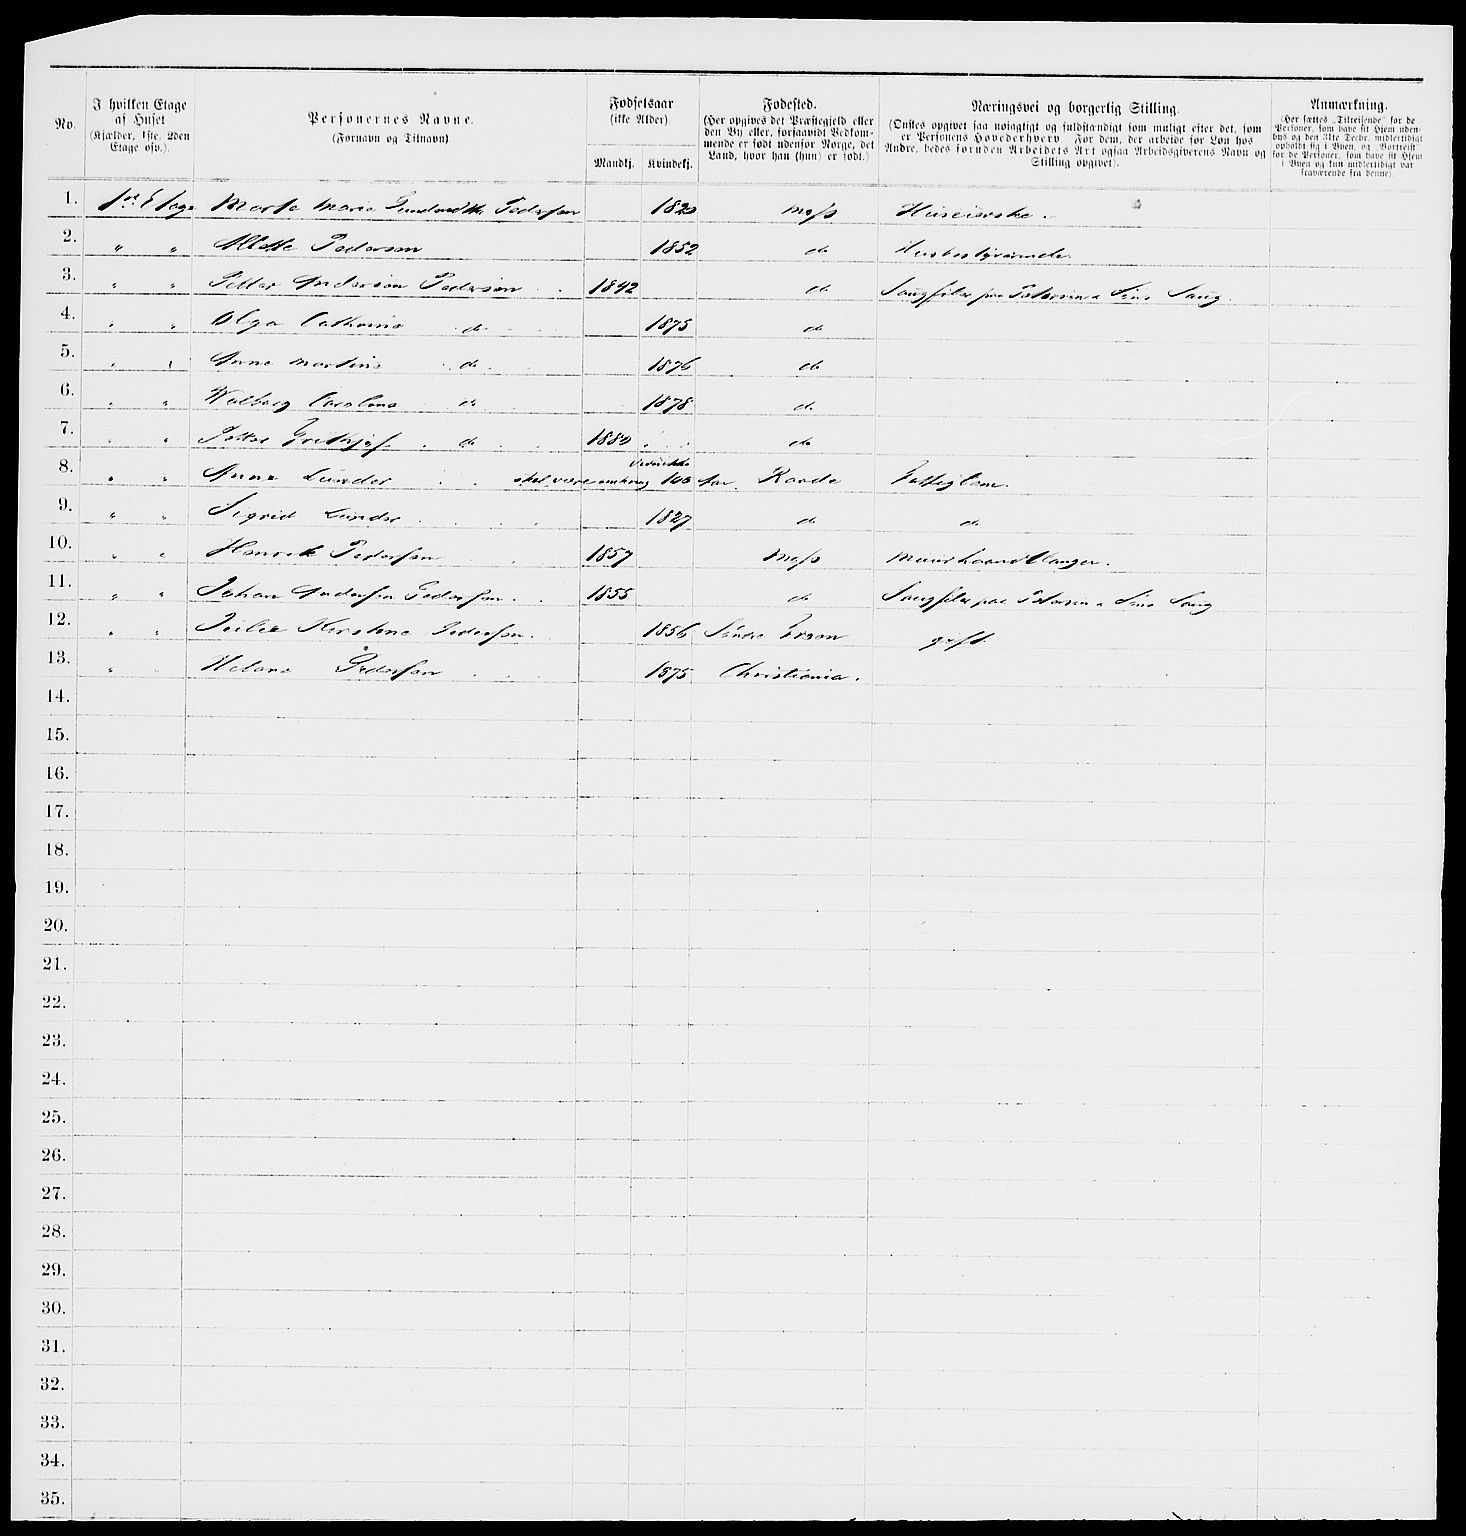 No.
I hvilken Etage af Huset
(Kjælder, 1ste, 2den Etage osv.).
Personernes Navne.
(Fornavn og Tilnavn).
Fødselsaar
(ikke Alder).
Mandkj. Kvindekj.
Fødested.
(Her opgives det Præstegjeld eller
den By eller, forsaavidt Vedkom-
mende er født udenfor Norge, det
Land, hvor han (hun) er født.)
Næringsvei og borgerlig Stilling.
(Ønskes opgivet saa nøiagtigt og fuldstændigt som muligt efter det, som
er Personens Hovederhverv. For dem, der arbeide for Løn hos
Andre, bedes foruden Arbeidets Art ogsaa Arbeidsgiverens Navn og
Stilling opgivet).
Anmærkning.
(Her sættes „Tilreisende" for de
Personer, som have sit Hjem uden-
bys og den 31te Decbr. midlertidigt
opholdt sig i Byen, og „Bortreist"
for de Personer, som have sit Hjem
i Byen og kun midlertidigt var
fraværende fra denne).
1. 1st Etage Marte Marie Pedersen 1820 Moss Huseierske.
2. " " Pedersen 1852 do Husbestyrerinde.
3. " " Petter Andersen Pedersen 1842 do Saugfiler paa Petersen & Søns Saug
4. " " Olga Cathrine do 1875 do
5. " " Anne Martine do 1876 do
6. " " Walborg Caroline do 1878 do
7. " " Petter do 1880 do
8. " " Anne Lunder skal være omkring 100 Aar Raade Fattiglem.
9. " " Sigrid Lunder 1827 do do
10. " " Henrik Pedersen 1857 Moss Murhaandlanger.
11. " " Johan Andersen Pedersen 1855 do Saugfiler paa Petersen & Søns Saug
12. " " Kirstine Pedersen. 1856 Søndre gift
13. " " Pedersen 1875 Christiania.
14.
15.
16.
17.
18.
19.
20.
21.
22.
23.
24.
25.
26.
27.
28.
29.
30.
31.
32.
33.
34.
35.